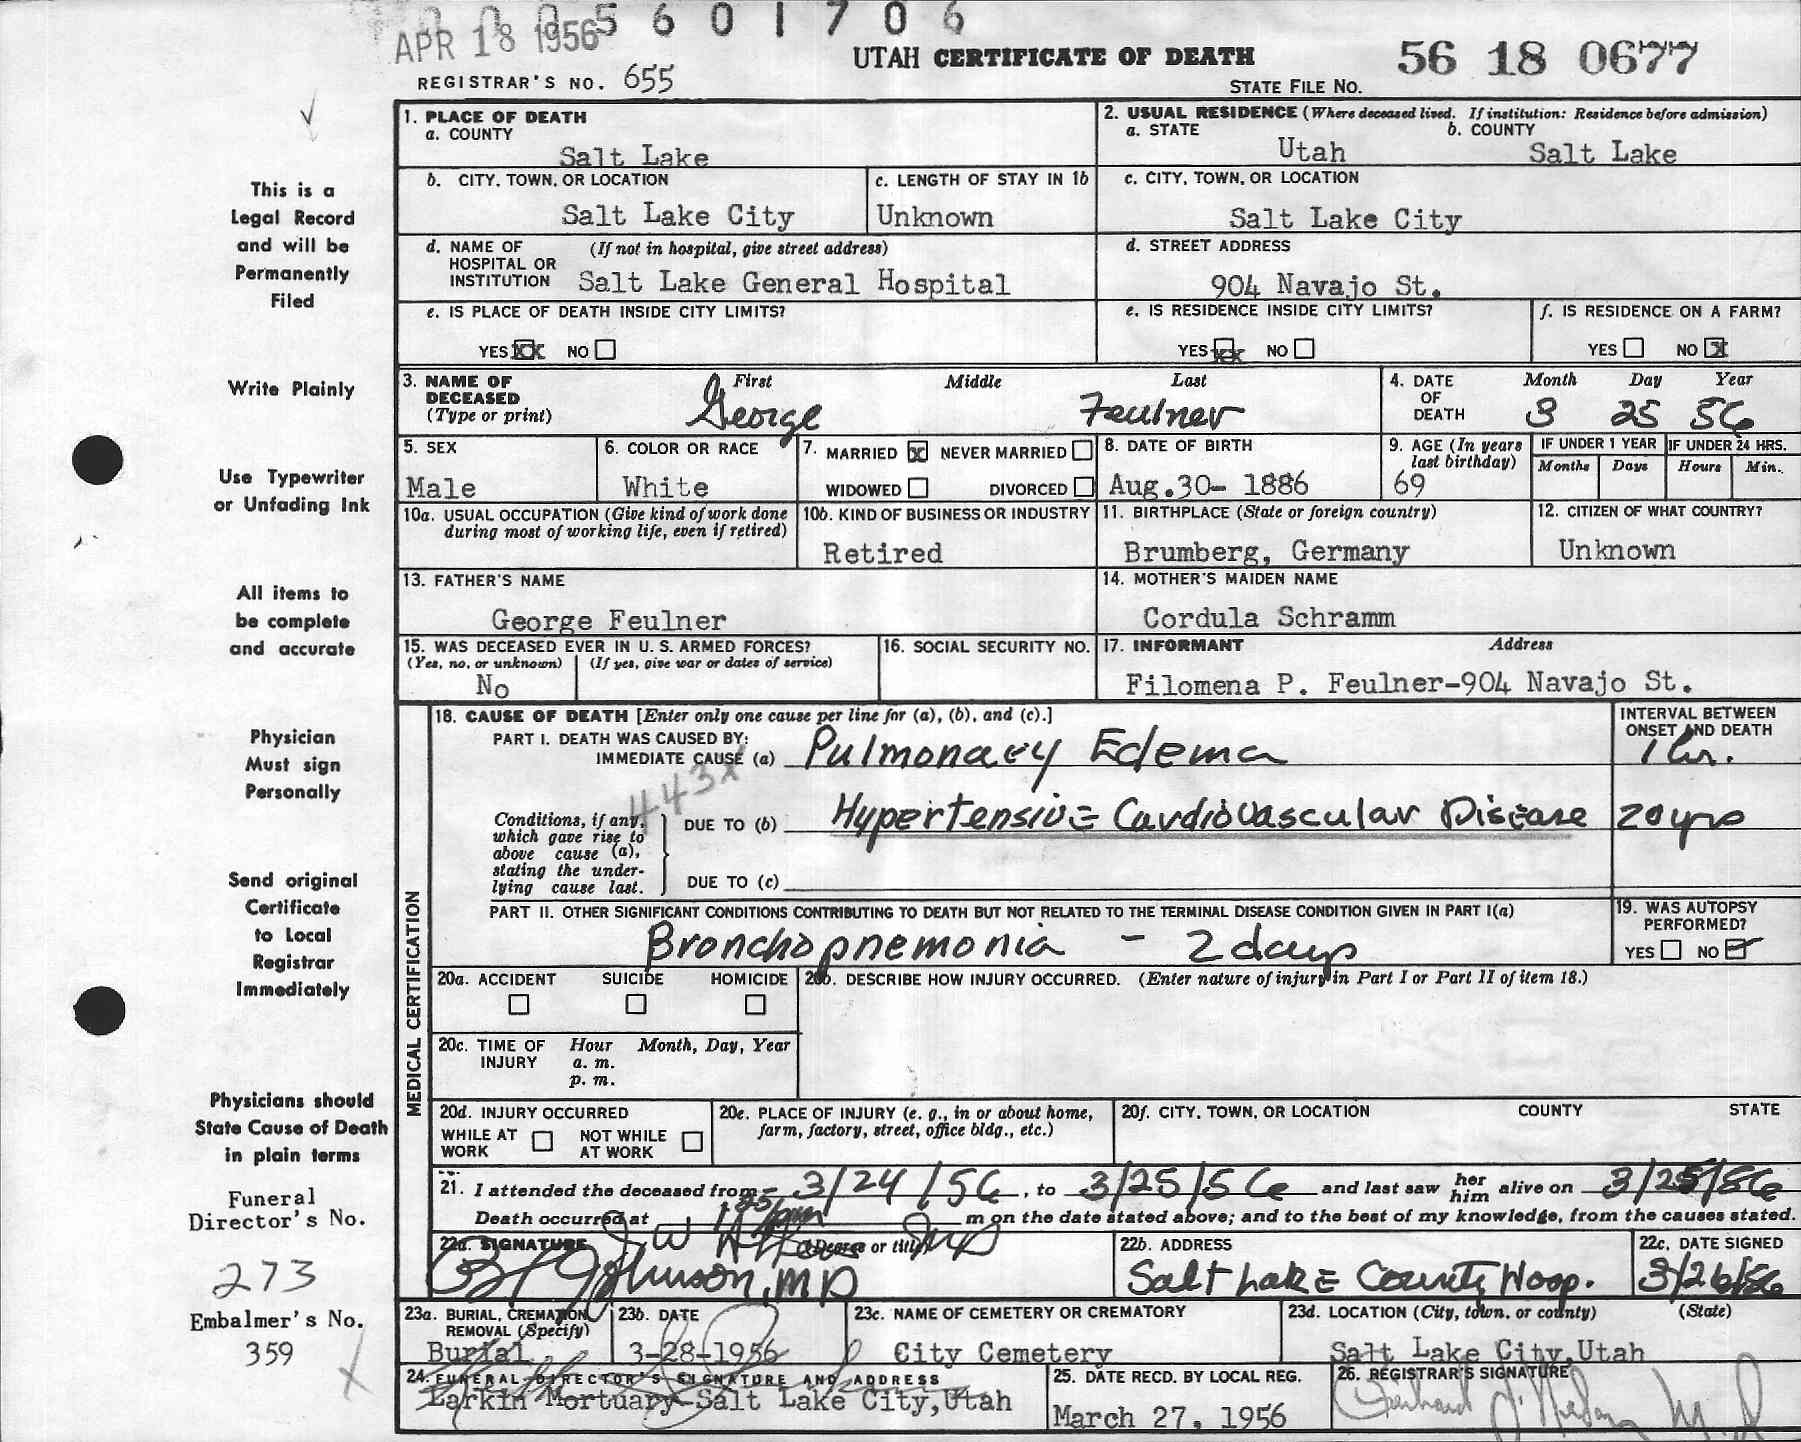 0 0 5 6 0 1 7 0 6
APR 18 1956
UTAH CERTIFICATE OF DEATH
56 18 0677
REGISTRAR'S NO. 655
STATE FILE NO.
This is a
Legal Record
and will be
Permanently
Filed
Write Plainly
Use Typewriter
or Unfading Ink
All items to
be complete
and accurate
Physician
Must sign
Personally
Send original
Certificate
to Local
Registrar
Immediately
Physicians should
State Cause of Death
in plain terms
Funeral
Director's No.
273
Embalmer's No.
359
1. PLACE OF DEATH
a. COUNTY
Salt Lake
2. USUAL RESIDENCE (Where deceased lived. If institution: Residence before admission)
a. STATE b. COUNTY
Utah Salt Lake
b. CITY, TOWN, OR LOCATION
Salt Lake City
c. LENGTH OF STAY IN 1b
Unknown
c. CITY, TOWN, OR LOCATION
Salt Lake City
d. NAME OF (If not in hospital, give street address)
HOSPITAL OR
INSTITUTION Salt Lake General Hospital
d. STREET ADDRESS
904 Navajo St.
e. IS PLACE OF DEATH INSIDE CITY LIMITS?
YES XX NO
e. IS RESIDENCE INSIDE CITY LIMITS?
YES XX NO
f. IS RESIDENCE ON A FARM?
YES NO X
3. NAME OF
DECEASED
(Type or print)
First Middle Last
George Feulner
4. DATE
OF
DEATH
Month Day Year
3 25 56
5. SEX
Male
6. COLOR OR RACE
White
7. MARRIED X NEVER MARRIED
WIDOWED DIVORCED
8. DATE OF BIRTH
Aug.30- 1886
9. AGE (In years
last birthday)
69
IF UNDER 1 YEAR IF UNDER 24 HRS.
Months Days Hours Min.
10a. USUAL OCCUPATION (Give kind of work done
during most of working life, even if retired)
10b. KIND OF BUSINESS OR INDUSTRY
Retired
11. BIRTHPLACE (State or foreign country)
Brumberg, Germany
12. CITIZEN OF WHAT COUNTRY?
Unknown
13. FATHER'S NAME
George Feulner
14. MOTHER'S MAIDEN NAME
Cordula Schramm
15. WAS DECEASED EVER IN U. S. ARMED FORCES?
(Yes, no, or unknown) (If yes, give war or dates of service)
No
16. SOCIAL SECURITY NO.
17. INFORMANT Address
Filomena P. Feulner-904 Navajo St.
MEDICAL CERTIFICATION
18. CAUSE OF DEATH [Enter only one cause per line for (a), (b), and (c).]
INTERVAL BETWEEN
ONSET AND DEATH
PART I. DEATH WAS CAUSED BY:
IMMEDIATE CAUSE (a) Pulmonary Edema 1 hr.
443X
Conditions, if any,
which gave rise to
above cause (a),
stating the under-
lying cause last.
DUE TO (b) Hypertensive Cardiovascular Disease 20 yrs
DUE TO (c)
PART II. OTHER SIGNIFICANT CONDITIONS CONTRIBUTING TO DEATH BUT NOT RELATED TO THE TERMINAL DISEASE CONDITION GIVEN IN PART I(a)
Bronchopnemonia - 2 days
19. WAS AUTOPSY
PERFORMED?
YES NO
20a. ACCIDENT SUICIDE HOMICIDE
20b. DESCRIBE HOW INJURY OCCURRED. (Enter nature of injury in Part I or Part II of item 18.)
20c. TIME OF INJURY Hour Month, Day, Year
a. m.
p. m.
20d. INJURY OCCURRED
WHILE AT WORK NOT WHILE AT WORK
20e. PLACE OF INJURY (e. g., in or about home,
farm, factory, street, office bldg., etc.)
20f. CITY, TOWN, OR LOCATION COUNTY STATE
21. I attended the deceased from 3/24/56, to 3/25/56 and last saw her him alive on 3/25/56
Death occurred at m on the date stated above; and to the best of my knowledge, from the causes stated.
22a. SIGNATURE (Degree or title)
Johnson, MD
22b. ADDRESS
Salt Lake County Hosp.
22c. DATE SIGNED
3/26/56
23a. BURIAL, CREMATION,
REMOVAL (Specify)
Burial
23b. DATE
3-28-1956
23c. NAME OF CEMETERY OR CREMATORY
City Cemetery
23d. LOCATION (City, town, or county) (State)
Salt Lake City, Utah
24. FUNERAL DIRECTOR'S SIGNATURE AND ADDRESS
Larkin Mortuary-Salt Lake City, Utah
25. DATE RECD. BY LOCAL REG.
March 27, 1956
26. REGISTRAR'S SIGNATURE